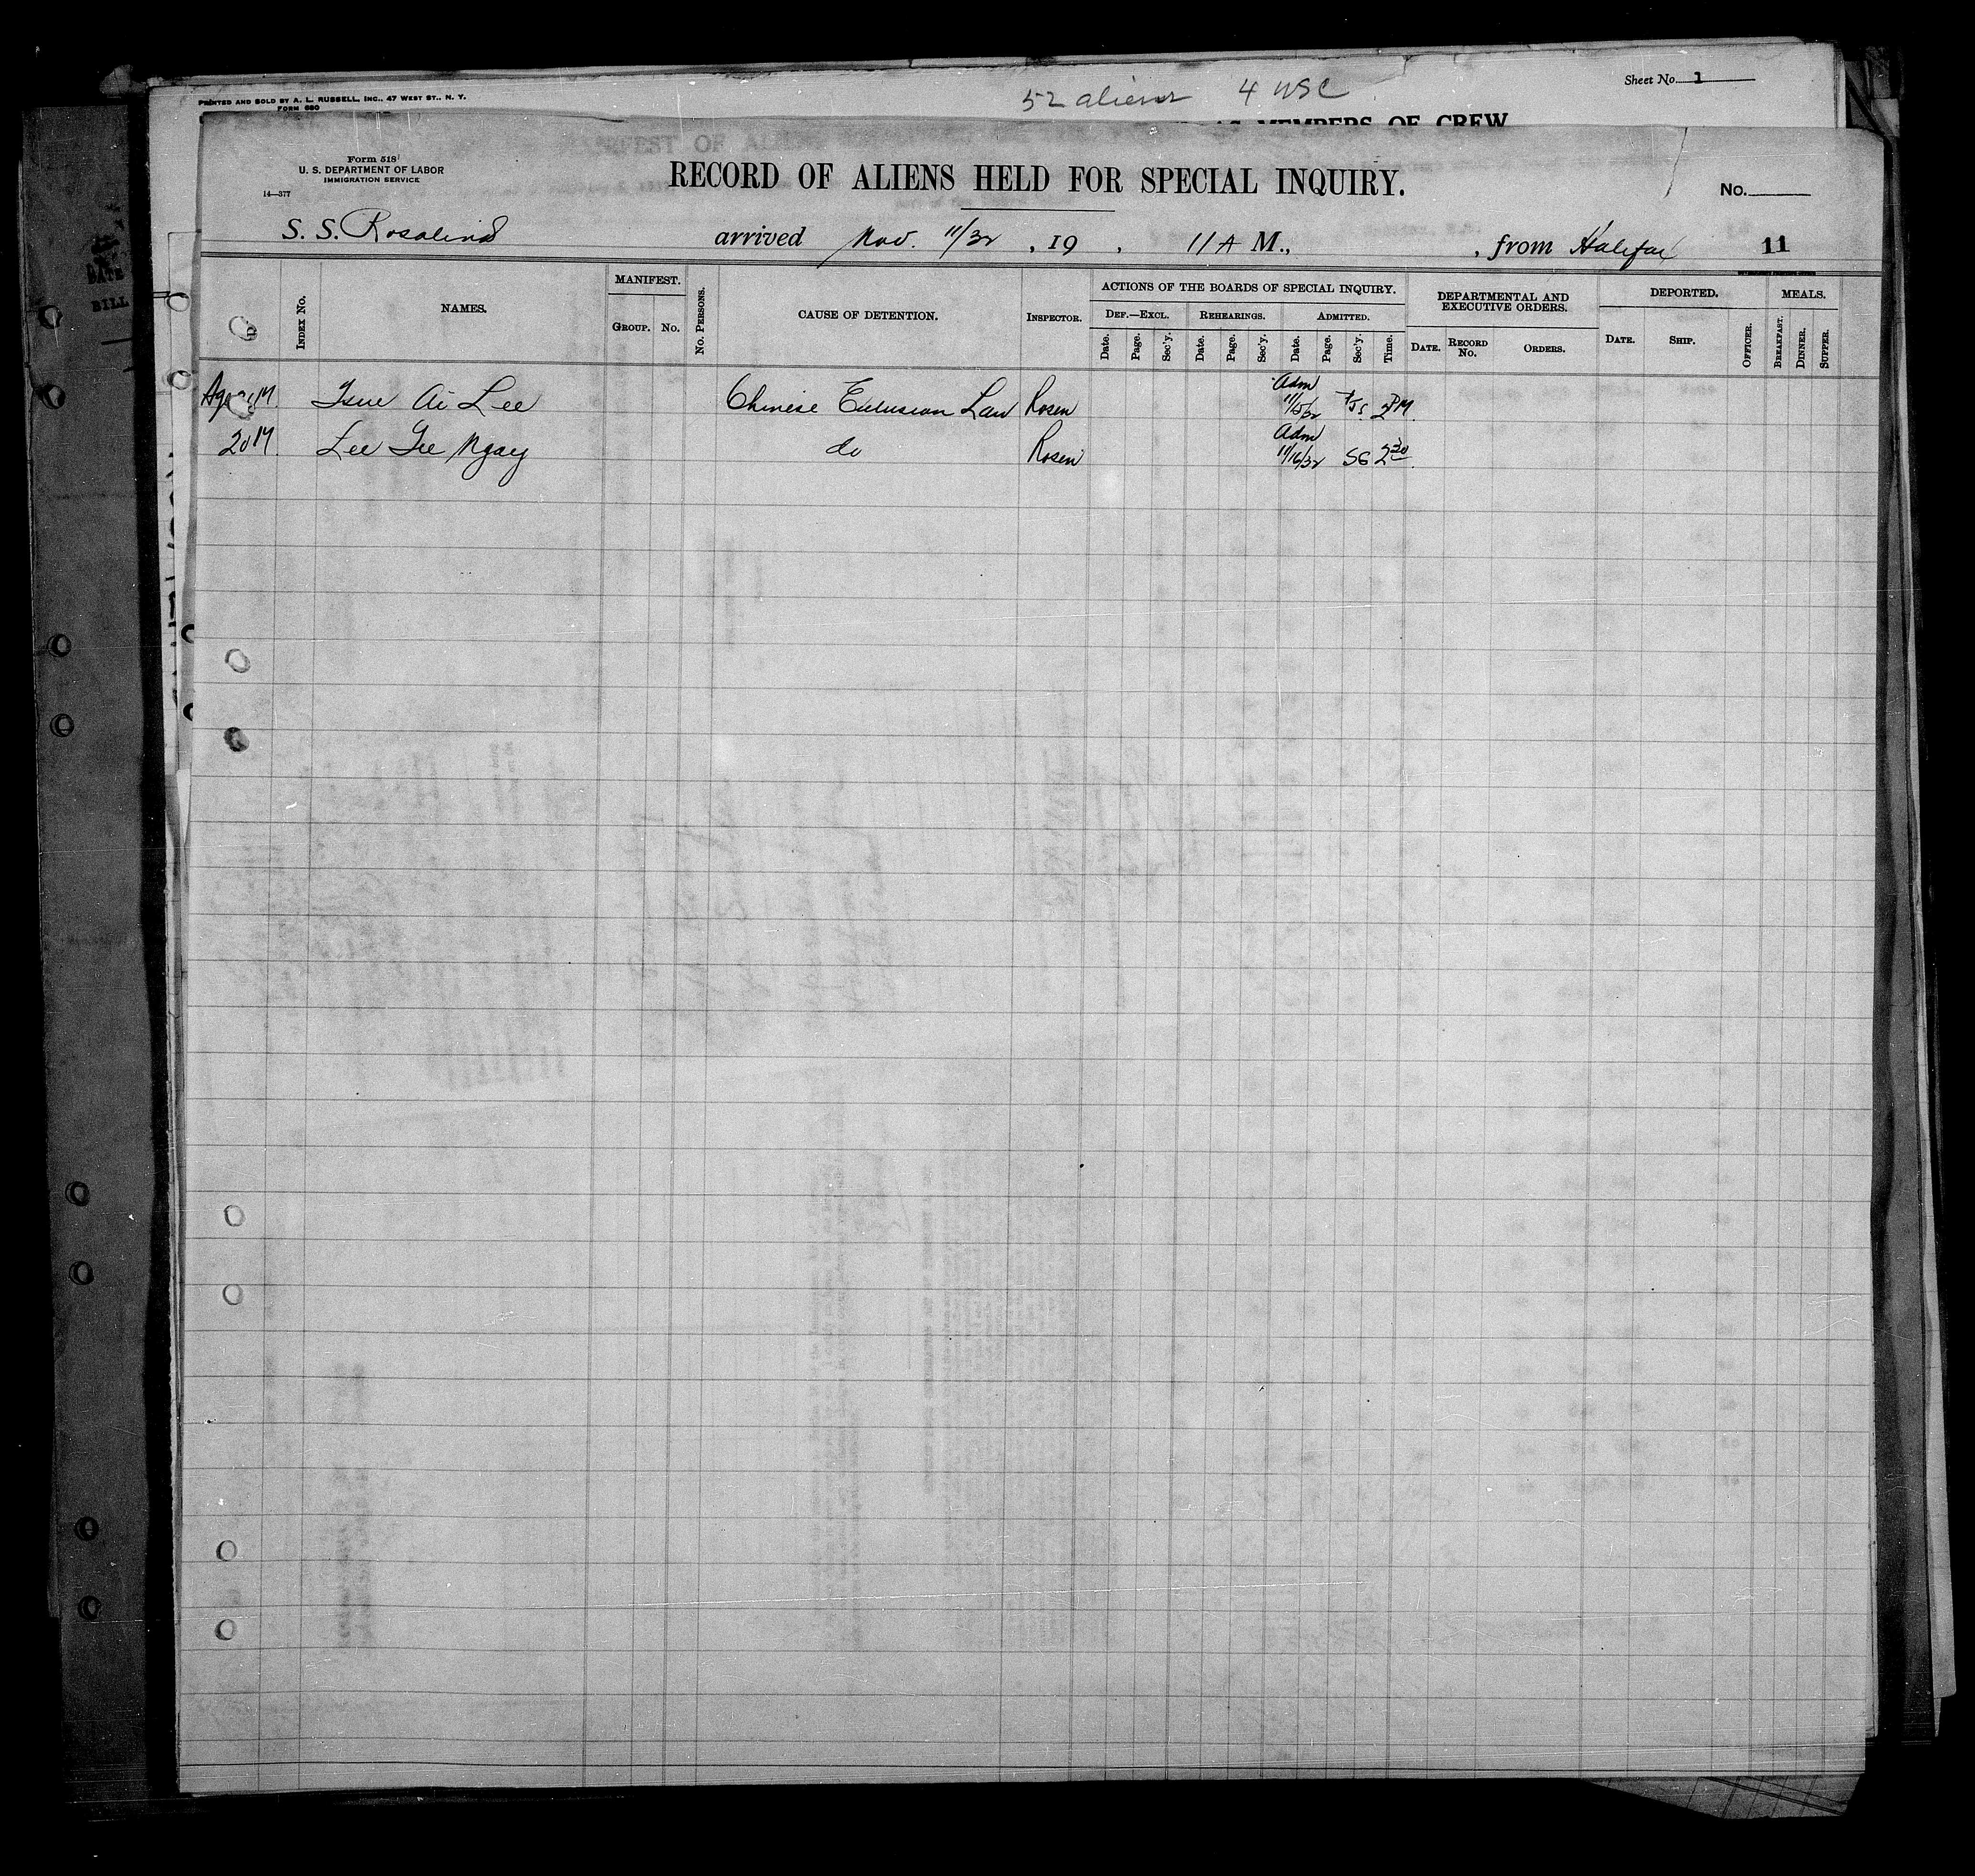 PRINTED AND SOLD BY A. L. RUSSELL, INC., 47 WEST ST., N. Y.
FORM 680
52 aliens 4 USC
Sheet No. 1
AS MEMBERS OF CREW
MANIFEST OF ALIENS
Form 518
U. S. DEPARTMENT OF LABOR
IMMIGRATION SERVICE
14—377
RECORD OF ALIENS HELD FOR SPECIAL INQUIRY.
No.
S. S. Rosalind arrived Nov. 11/32, 19 , 11 A M., , from Halifax 11
INDEX No.
NAMES.
MANIFEST.
GROUP. No.
No. PERSONS.
CAUSE OF DETENTION.
INSPECTOR.
ACTIONS OF THE BOARDS OF SPECIAL INQUIRY.
DEF.—EXCL. REHEARINGS. ADMITTED.
Date. Page. Sec'y. Date. Page. Sec'y. Date. Page. Sec'y. Time.
DEPARTMENTAL AND EXECUTIVE ORDERS.
DATE. RECORD No. ORDERS.
DEPORTED.
DATE. SHIP. OFFICER.
MEALS.
BREAKFAST. DINNER. SUPPER.
Tsue Ai Lee Chinese Exclusion Law Rosen Adm 2 PM
20 M. Lee Gee Ngay do Rosen Adm 11/16/32 SG 2 30
DATE
BILL